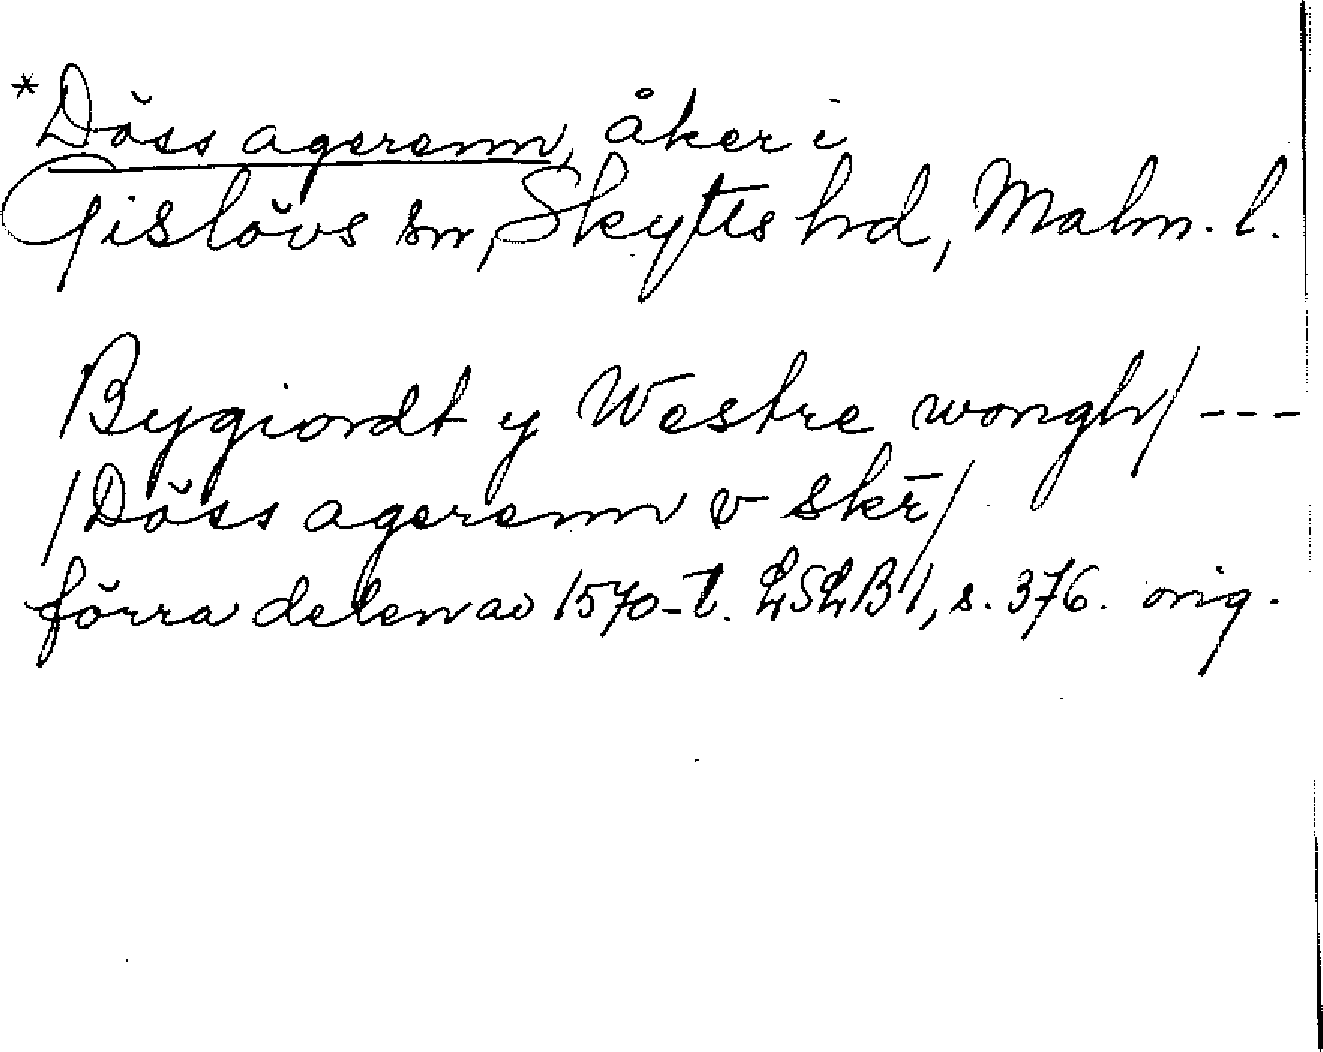 *Döss agerenn, åker i
Gislövs sn, Skytts hrd, Malm. l.
Bygiordt y Westre wongh/ ---
/Döss agerenn v skē/
förra delen av 1570-t. LSLB 1, s. 376. orig.